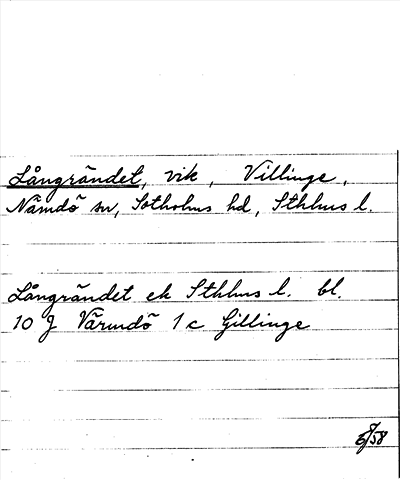 Långrändet, vik, Villinge,
Nämdö sn, Sotholms hd, Sthlms l.
Långrändet ek Sthlms l. bl.
10 J Värmdö 1c Gillinge
/58